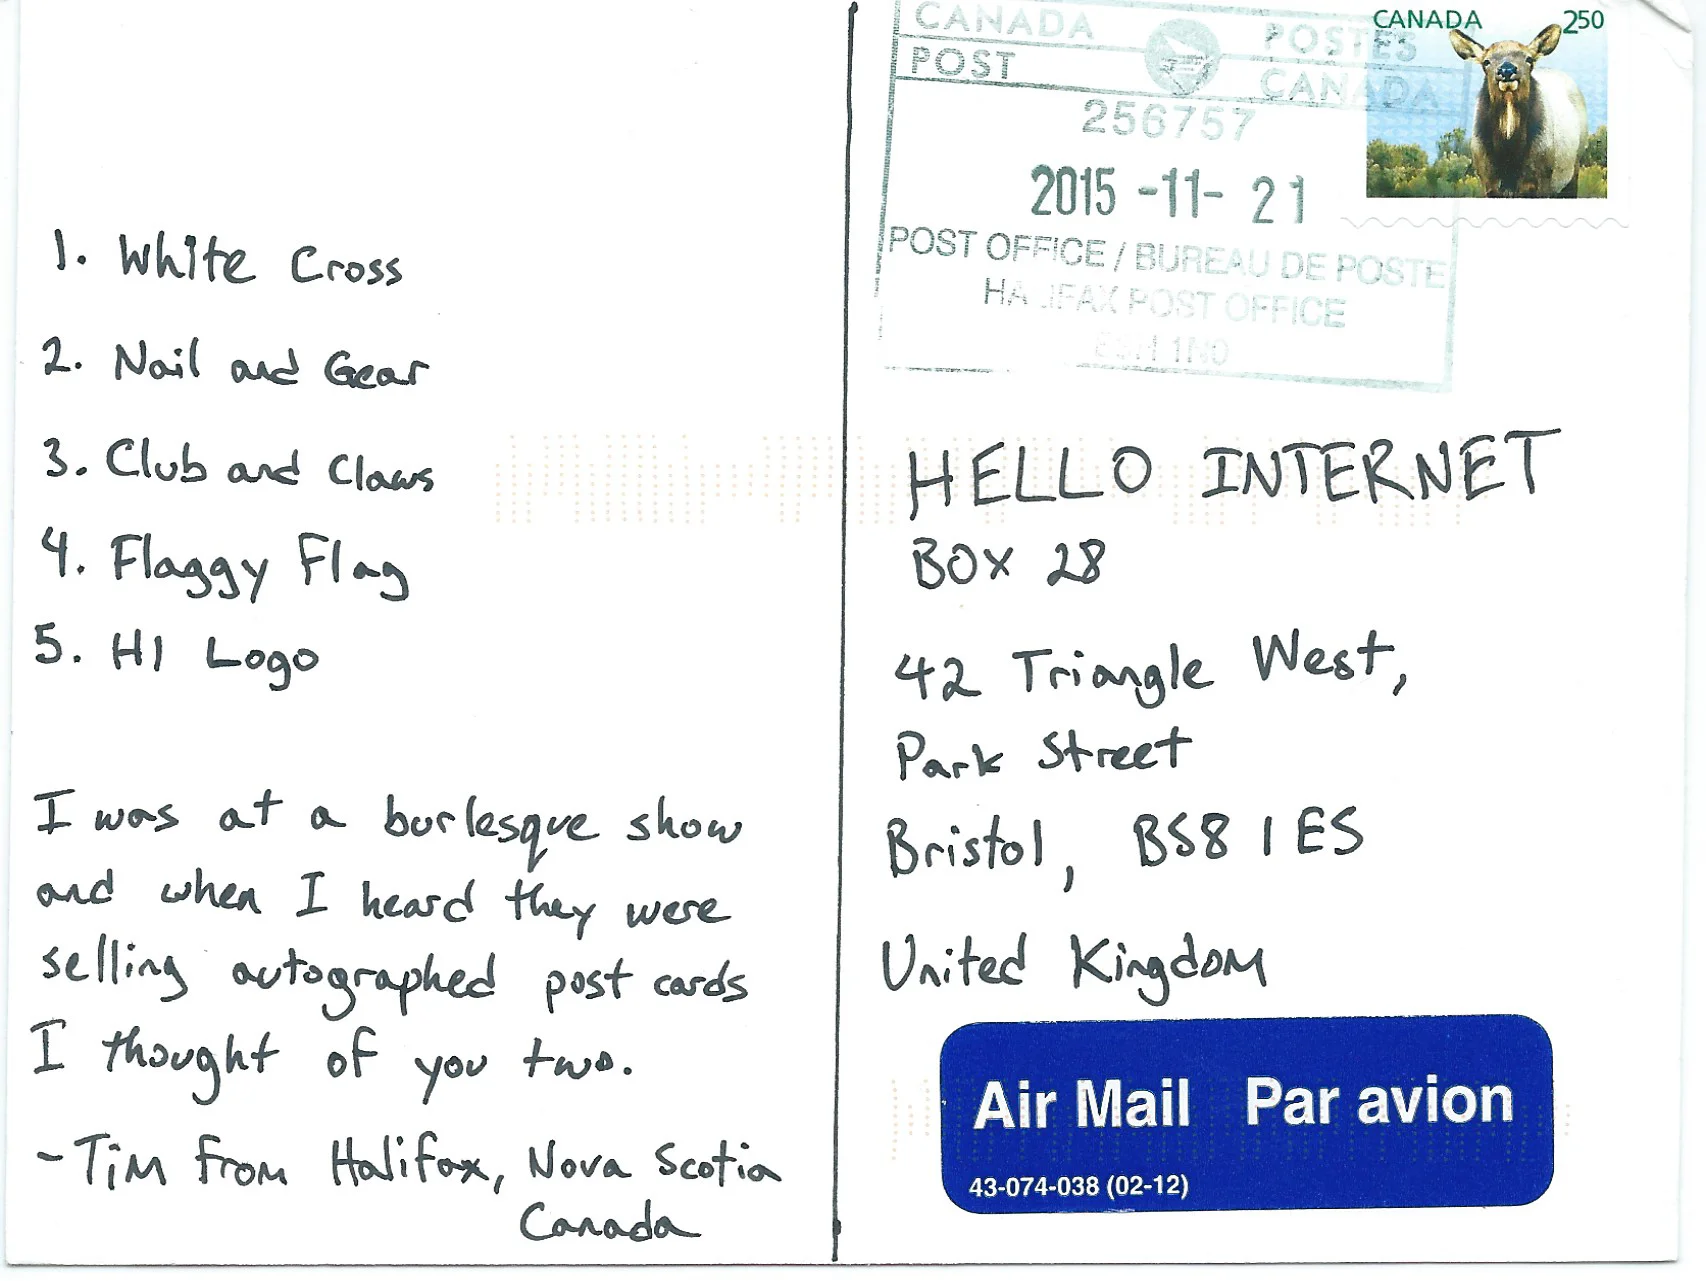 1. White Cross
2. Nail and Gear
3. Club and Claws
4. Flaggy Flag
5. HI Logo
I was at a burlesque show
and when I heard they were
selling autographed post cards
I thought of you two.
- Tim from Halifax, Nova Scotia
Canada
CANADA POSTES
POST CANADA
256757
2015 -11- 21
POST OFFICE / BUREAU DE POSTE
HALIFAX POST OFFICE
1N0
CANADA 250
HELLO INTERNET
BOX 28
42 Triangle West,
Park Street
Bristol, BS8 1ES
United Kingdom
Air Mail Par avion
43-074-038 (02-12)